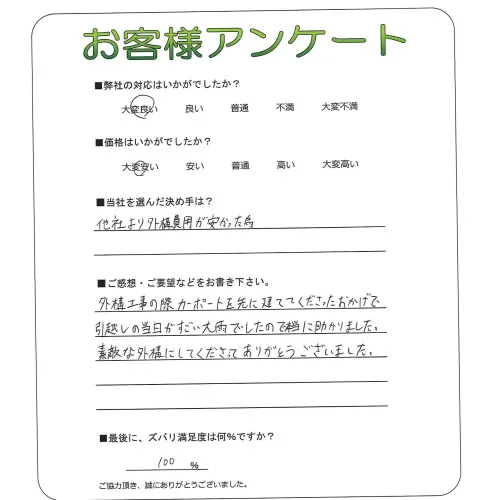 お客様アンケート
■弊社の対応はいかがでしたか？
大変良い 良い 普通 不満 大変不満
■価格はいかがでしたか？
大変安い 安い 普通 高い 大変高い
■当社を選んだ決め手は？
他社より外構費用が安かった為
■ご感想・ご要望などをお書き下さい。
外構工事の際カーポートを先に建ててくださったおかげで
引越しの当日がすごい大雨でしたので本当に助かりました。
素敵な外構にしてくださってありがとうございました。
■最後に、ズバリ満足度は何％ですか？
100 ％
ご協力頂き、誠にありがとうございました。